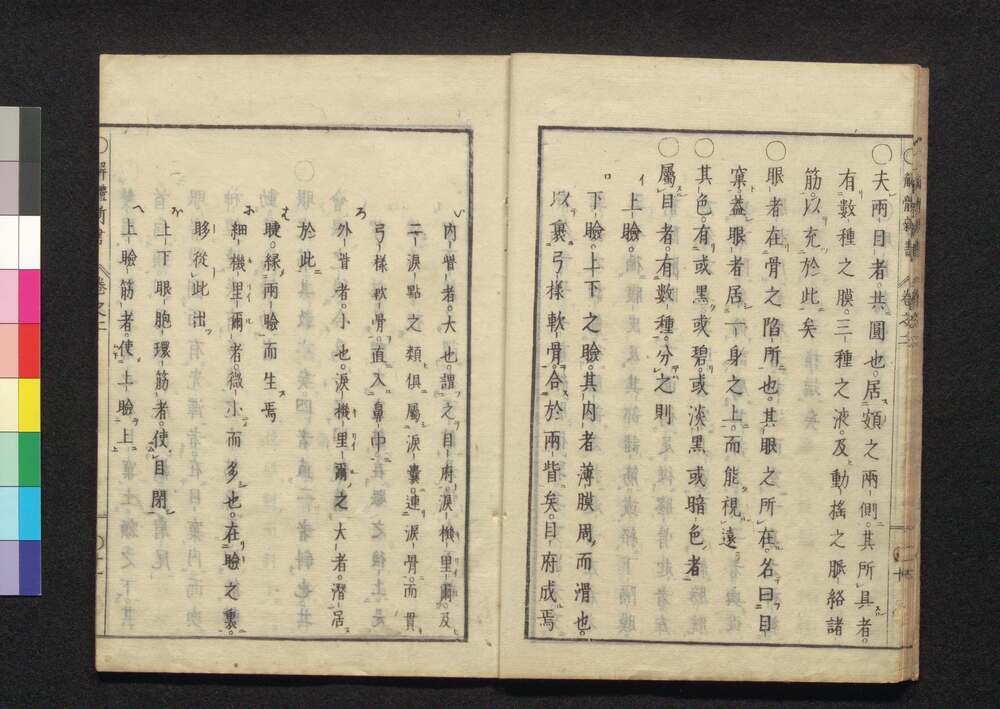 ○夫兩目者。共圓也。居頞之兩側。其所具者。
有數種之膜。三種之液。及動搖之脈絡諸
筋。以充於此矣
○眼者在骨之陷所也。其眼之所在。名曰目
窠。蓋眼者居一身之上。而能視遠
○其色。有或黑。或碧。或淡黑或暗色者
○屬目者。有數種。分之則
イ上瞼。
ロ下瞼。上下之瞼。其内者薄膜周。而滑也。
以裹弓樣軟骨。合於兩眥矣。目府成焉
い内眥者。大也。謂之目府。淚機里爾及
二淚點之類。俱屬。淚囊。連淚骨。而貫
弓樣軟骨。直入鼻中
ろ外眥者。小也。淚機里爾之大者。潛居
於此
む睫。緣兩瞼而生焉
細機里爾者。微小而多也。在瞼之裏。
眵從此出
ほ上下眼胞環筋者。使目閉
へ上瞼筋者使上瞼上
解體新書 卷之二